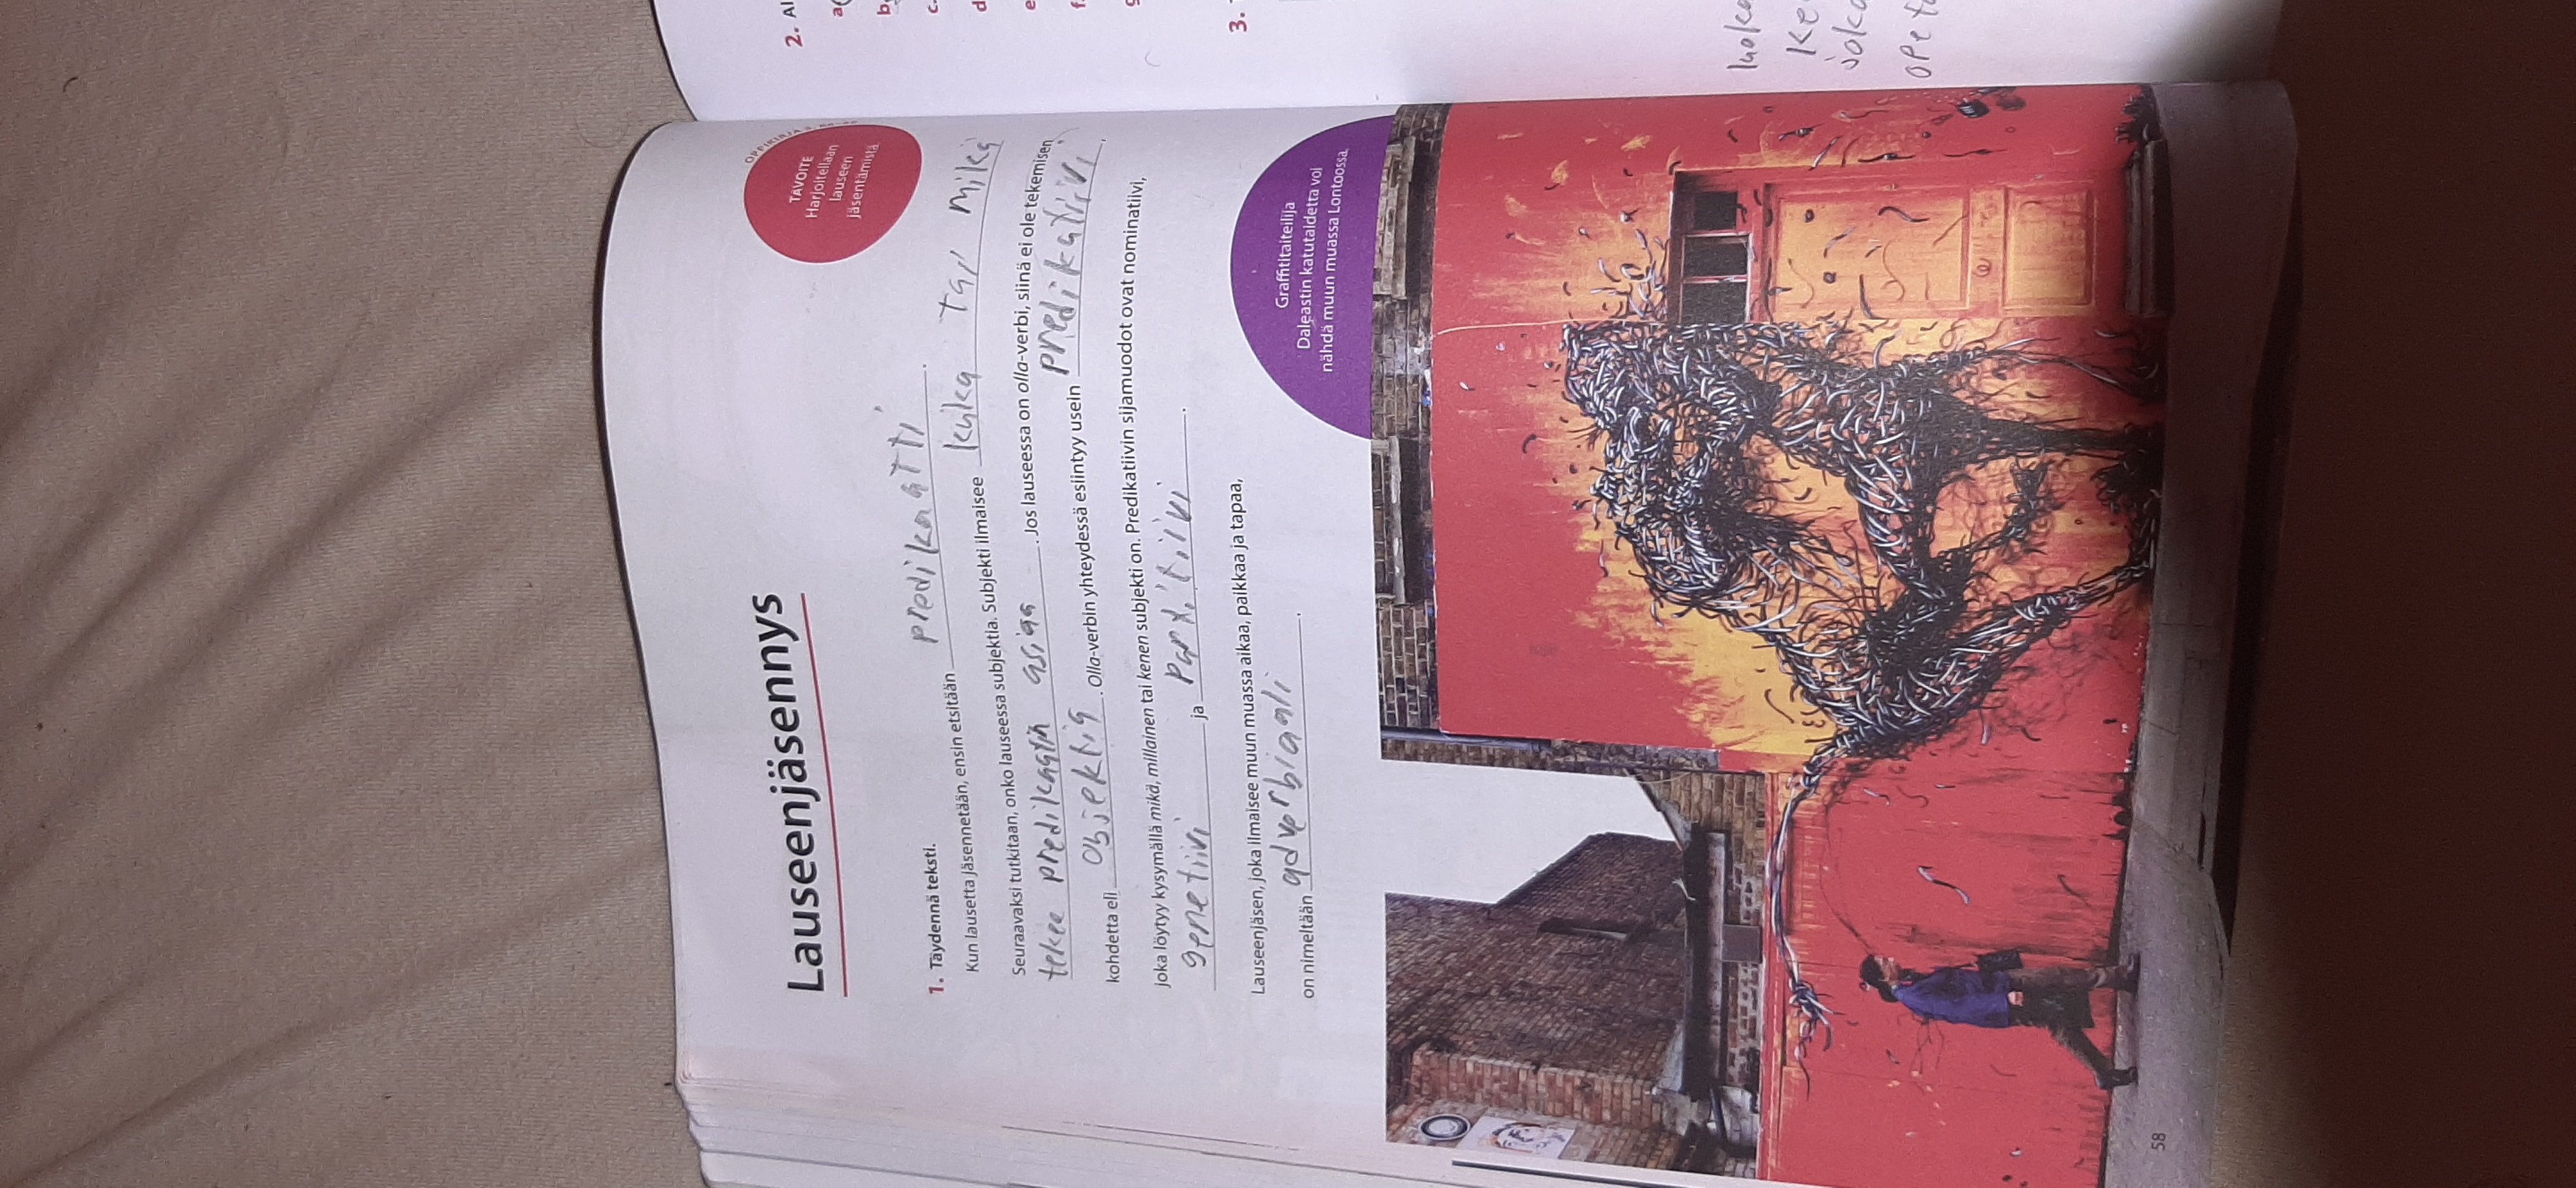 Lauseenjäsennys
OPPIKIRJA
TAVOITE
Harjoitellaan
lauseen
jäsentämistä.
1. Täydennä teksti.
Kun lausetta jäsennetään, ensin etsitään predikaatti.
Seuraavaksi tutkitaan, onko lauseessa subjektia. Subjekti ilmaisee kuka tai mikä
tekee predikaatin asiaa. Jos lauseessa on olla-verbi, siinä ei ole tekemisen
kohdetta eli objektia. Olla-verbin yhteydessä esiintyy usein predikatiivi,
joka löytyy kysymällä mikä, millainen tai kenen subjekti on. Predikatiivin sijamuodot ovat nominatiivi,
genetiivi ja partitiivi.
Lauseenjäsen, joka ilmaisee muun muassa aikaa, paikkaa ja tapaa,
on nimeltään adverbiaali.
Graffititaiteilija
DALeastin katutaidetta voi
nähdä muun muassa Lontoossa.
58
2. Al
a
b
c.
d
e
f.
g
3.
luoka
ke
joka
opeta